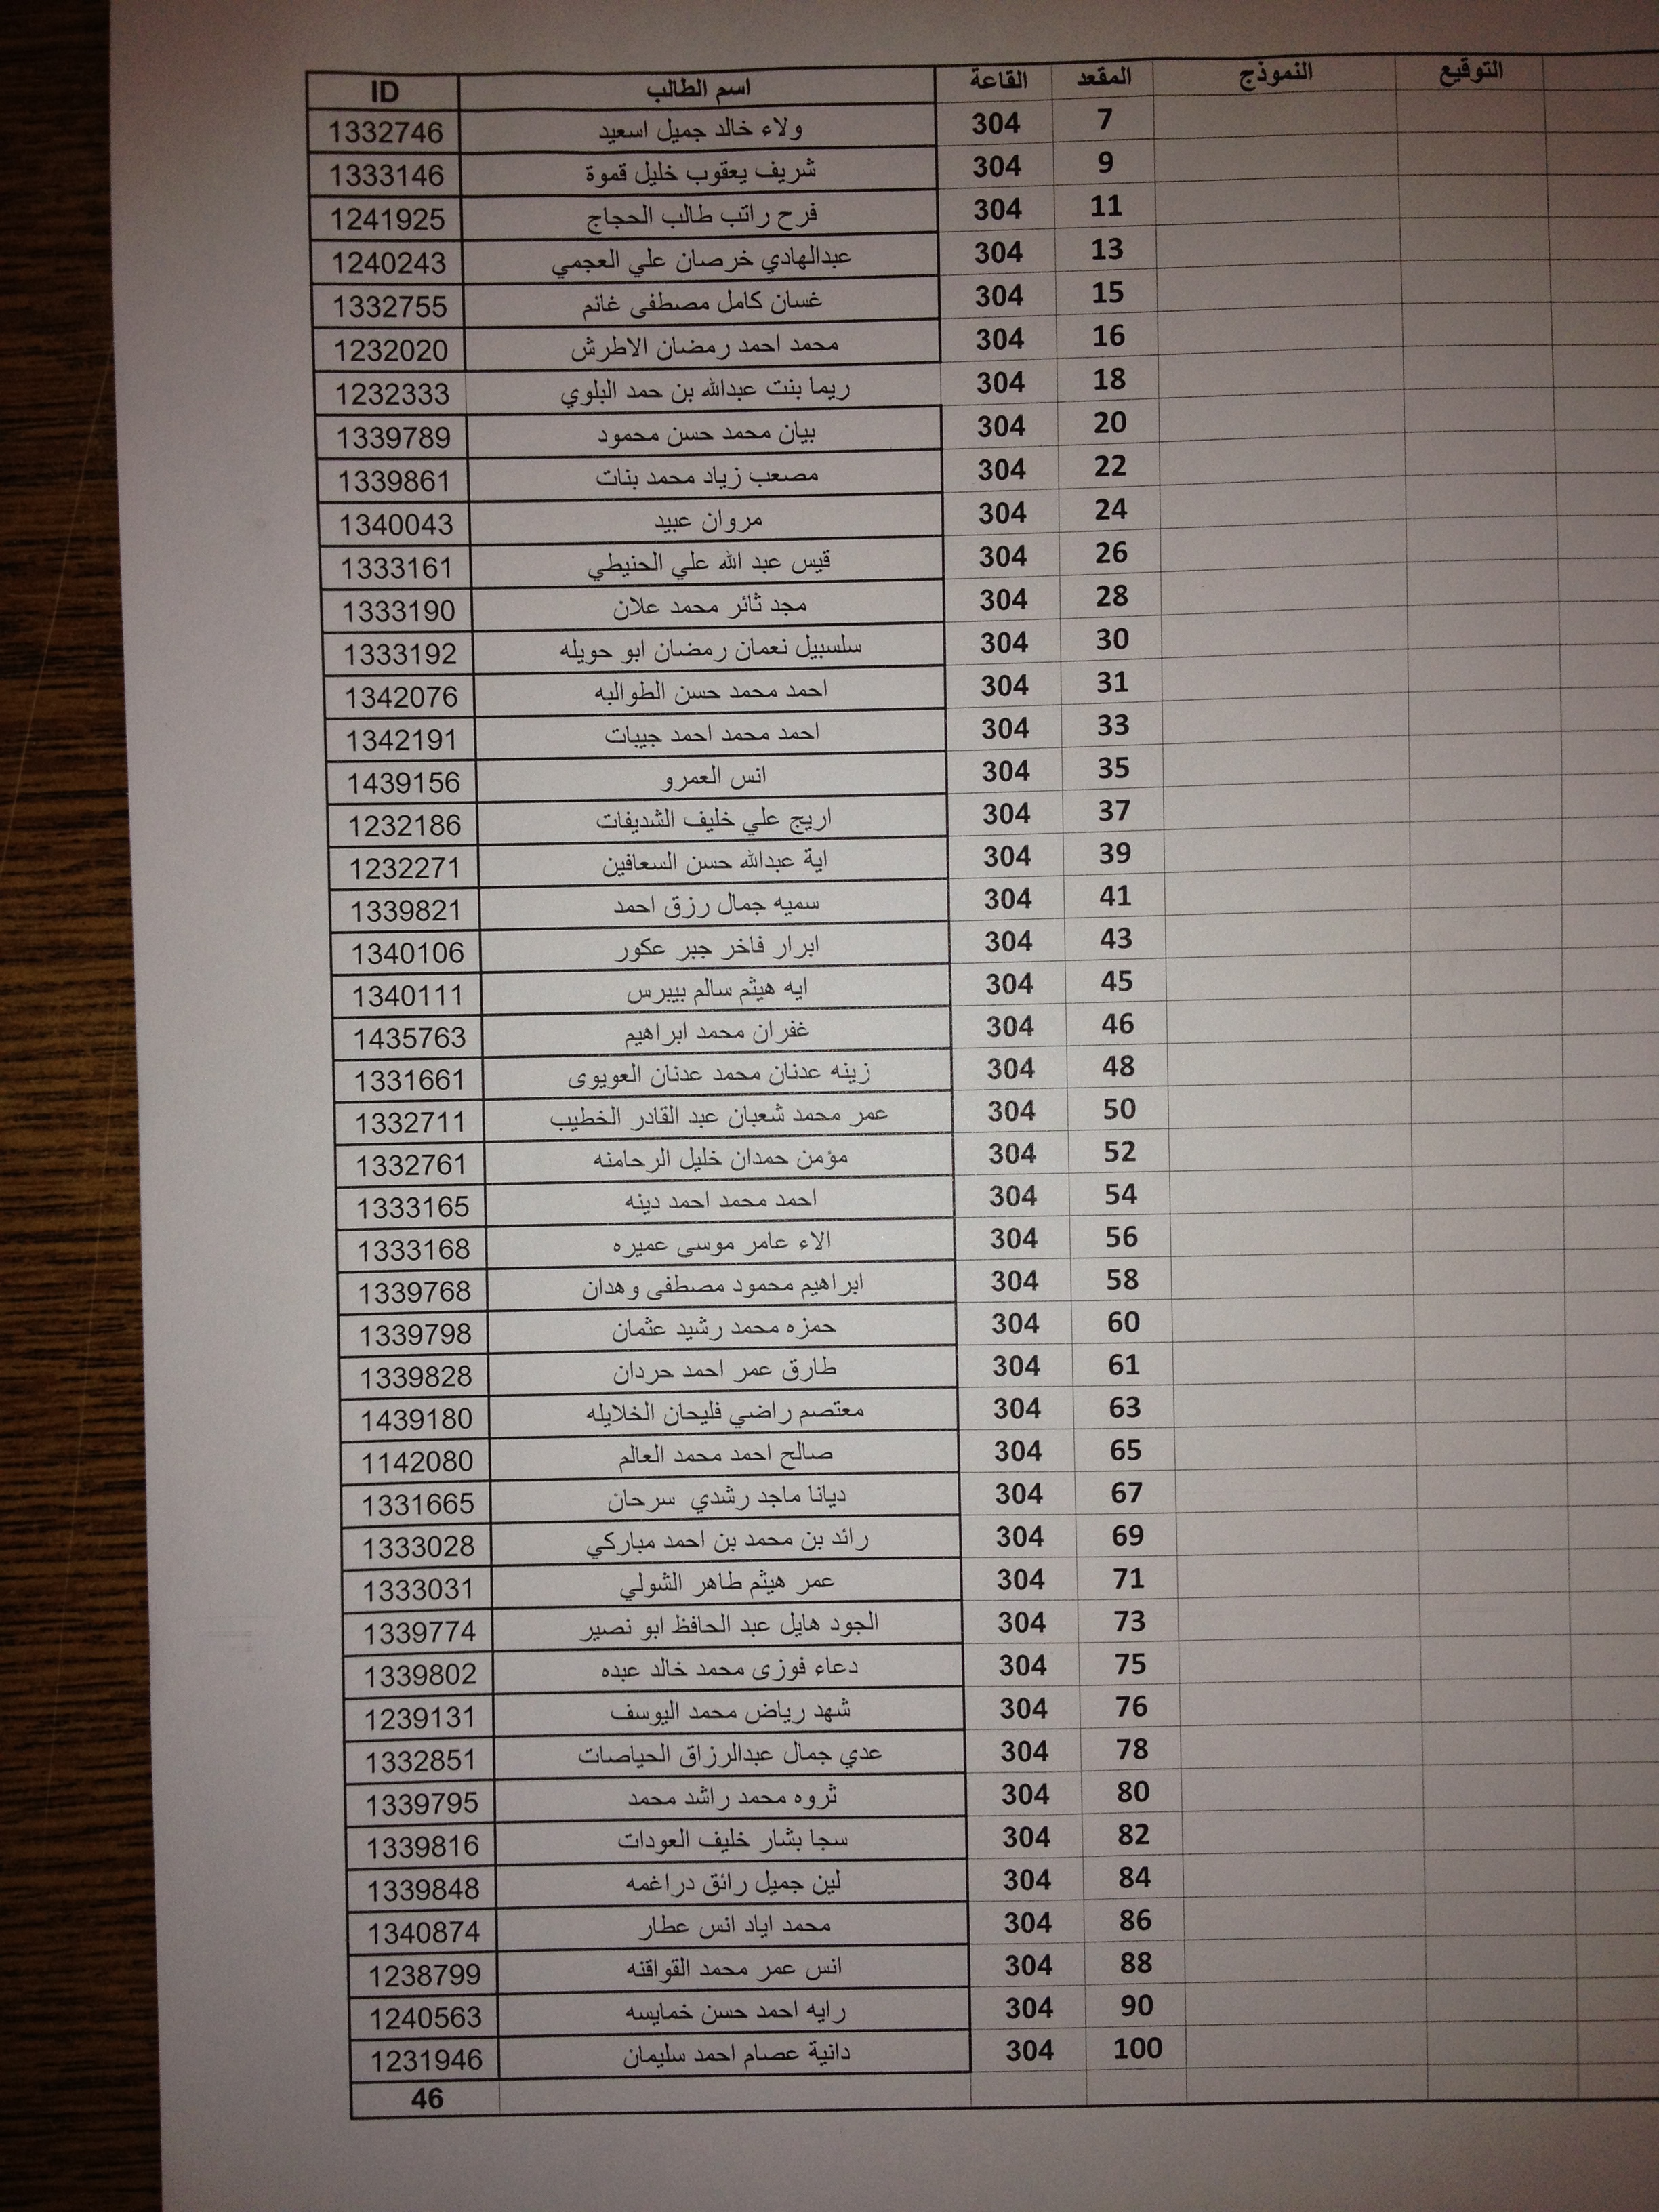 ID اسم الطالب القاعة المقعد النموذج التوقيع
1332746 ولاء خالد جميل اسعيد 304 7
1333146 شريف يعقوب خليل قموة 304 9
1241925 فرح راتب طالب الحجاج 304 11
1240243 عبدالهادي خرصان علي العجمي 304 13
1332755 غسان كامل مصطفى غانم 304 15
1232020 محمد احمد رمضان الاطرش 304 16
1232333 ريما بنت عبدالله بن حمد البلوي 304 18
1339789 بيان محمد حسن محمود 304 20
1339861 مصعب زياد محمد بنات 304 22
1340043 مروان عبيد 304 24
1333161 قيس عبد الله علي الحنيطي 304 26
1333190 مجد ثائر محمد علان 304 28
1333192 سلسبيل نعمان رمضان ابو حويله 304 30
1342076 احمد محمد حسن الطوالبه 304 31
1342191 احمد محمد احمد جيبات 304 33
1439156 انس العمرو 304 35
1232186 اريج علي خليف الشديفات 304 37
1232271 اية عبدالله حسن السعافين 304 39
1339821 سميه جمال رزق احمد 304 41
1340106 ابرار فاخر جبر عكور 304 43
1340111 ايه هيثم سالم بيبرس 304 45
1435763 غفران محمد ابراهيم 304 46
1331661 زينه عدنان محمد عدنان العويوى 304 48
1332711 عمر محمد شعبان عبد القادر الخطيب 304 50
1332761 مؤمن حمدان خليل الرحامنه 304 52
1333165 احمد محمد احمد دينه 304 54
1333168 الاء عامر موسى عميره 304 56
1339768 ابراهيم محمود مصطفى وهدان 304 58
1339798 حمزه محمد رشيد عثمان 304 60
1339828 طارق عمر احمد حردان 304 61
1439180 معتصم راضي فليحان الخلايله 304 63
1142080 صالح احمد محمد العالم 304 65
1331665 ديانا ماجد رشدي سرحان 304 67
1333028 رائد بن محمد بن احمد مباركي 304 69
1333031 عمر هيثم طاهر الشولي 304 71
1339774 الجود هايل عبد الحافظ ابو نصير 304 73
1339802 دعاء فوزى محمد خالد عبده 304 75
1239131 شهد رياض محمد اليوسف 304 76
1332851 عدي جمال عبدالرزاق الحياصات 304 78
1339795 ثروه محمد راشد محمد 304 80
1339816 سجا بشار خليف العودات 304 82
1339848 لين جميل رائق دراغمه 304 84
1340874 محمد اياد انس عطار 304 86
1238799 انس عمر محمد القواقنه 304 88
1240563 رايه احمد حسن خمايسه 304 90
1231946 دانية عصام احمد سليمان 304 100
46